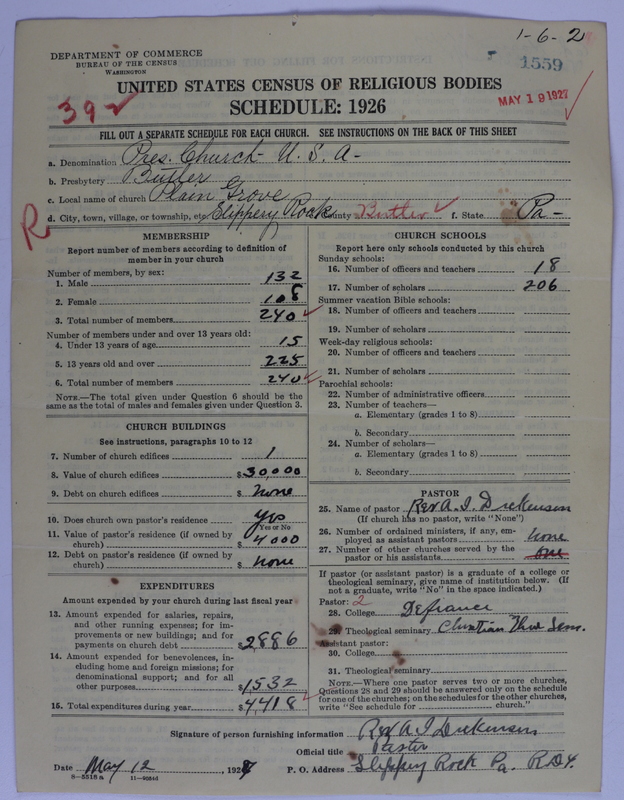 1-6-2
DEPARTMENT OF COMMERCE
BUREAU OF THE CENSUS
WASHINGTON
1559
UNITED STATES CENSUS OF RELIGIOUS BODIES
SCHEDULE: 1926
392
MAY 19 1927
FILL OUT A SEPARATE SCHEDULE FOR EACH CHURCH. SEE INSTRUCTIONS ON THE BACK OF THIS SHEET
a. Denomination Pres. Church - U. S. A -
b. Presbytery Butler
c. Local name of church Plain Grove
d. City, town, village, or township, etc. Slippery Rock County Butler f. State Pa -
R
MEMBERSHIP
Report number of members according to definition of
member in your church
Number of members, by sex:
1. Male 132
2. Female 108
3. Total number of members 240
Number of members under and over 13 years old:
4. Under 13 years of age 15
5. 13 years old and over 225
6. Total number of members 240
NOTE.—The total given under Question 6 should be the
same as the total of males and females given under Question 3.
CHURCH BUILDINGS
See instructions, paragraphs 10 to 12
7. Number of church edifices 1
8. Value of church edifices $30,000
9. Debt on church edifices $ none
10. Does church own pastor's residence Yes
Yes or No
11. Value of pastor's residence (if owned by
church) $ 4000
12. Debt on pastor's residence (if owned by
church) $ none
EXPENDITURES
Amount expended by your church during last fiscal year
13. Amount expended for salaries, repairs,
and other running expenses; for im-
provements or new buildings; and for
payments on church debt $2886
14. Amount expended for benevolences, in-
cluding home and foreign missions; for
denominational support; and for all
other purposes $1532
15. Total expenditures during year $4418
CHURCH SCHOOLS
Report here only schools conducted by this church
Sunday schools:
16. Number of officers and teachers 18
17. Number of scholars 206
Summer vacation Bible schools:
18. Number of officers and teachers
19. Number of scholars
Week-day religious schools:
20. Number of officers and teachers
21. Number of scholars
Parochial schools:
22. Number of administrative officers
23. Number of teachers—
a. Elementary (grades 1 to 8)
b. Secondary
24. Number of scholars—
a. Elementary (grades 1 to 8)
b. Secondary
PASTOR
25. Name of pastor Rev A. I. Dickenson
(If church has no pastor, write "None")
26. Number of ordained ministers, if any, em-
ployed as assistant pastors none
27. Number of other churches served by the
pastor or his assistants one
If pastor (or assistant pastor) is a graduate of a college or
theological seminary, give name of institution below. (If
not a graduate, write "No" in the space indicated.)
Pastor: 2
28. College Defiance
29. Theological seminary Christian Sem.
Assistant pastor:
30. College
31. Theological seminary
NOTE.—Where one pastor serves two or more churches,
Questions 28 and 29 should be answered only on the schedule
for one of the churches; on the schedules for the other churches,
write "See schedule for church."
Signature of person furnishing information Rev A I Dickenson
Official title Pastor
Date May 12, 1927 P. O. Address Slippery Rock Pa. R.D.4.
8-5518 a